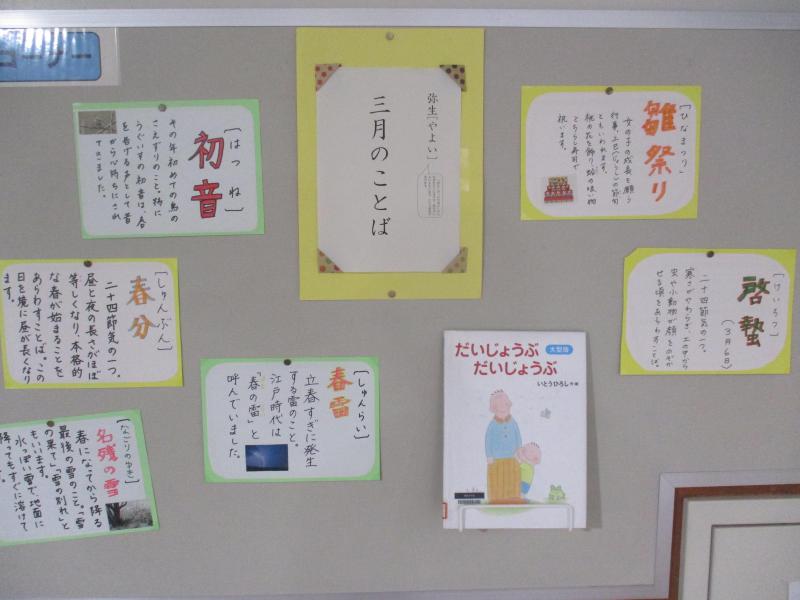 コーナー
弥生[やよい]
三月のことば
[ひなまつり]
雛祭り
女の子の成長を願う
行事。上巳(じょうし)の節句
ともいわれます。
桃の花を飾り、蛤の吸い物
とちらし寿司で
祝います。
[はつね]
初音
その年初めての鳥の
さえずりのこと。特に
うぐいすの初音は、春
を告げる声として昔
から心待ちにされ
てきました。
[けいちつ]
啓蟄
(3月6日)
二十四節気の一つ。
寒さがやわらぎ、土の中から
虫や小動物が顔をのぞか
せる頃をあらわすことば。
[しゅんぶん]
春分
二十四節気の一つ。
昼と夜の長さがほぼ
等しくなり、本格的
な春が始まることを
あらわすことば。この
日を境に昼が長くなり
ます。
[しゅんらい]
春雷
立春すぎに発生
する雷のこと。
江戸時代は
「春の雷」と
呼んでいました。
だいじょうぶ
だいじょうぶ
大型版
いとうひろし 作・絵
[なごりのゆき]
名残の雪
春になってから降る
最後の雪のこと。「雪
の果て」「雪の別れ」と
もいいます。
水っぽい雪で、地面に
降ってもすぐに溶けて